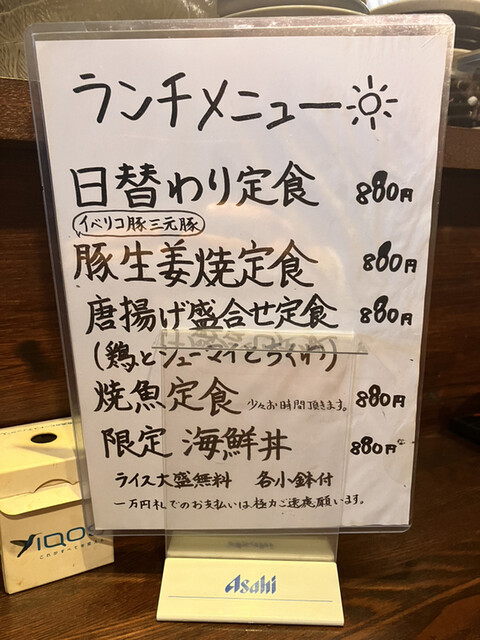 ランチメニュー
日替わり定食 880円
イベリコ豚三元豚
豚生姜焼定食 880円
唐揚げ盛合せ定食 880円
(鶏とシューマイとちくわ)
焼魚定食 少々お時間頂きます。 880円
限定 海鮮丼 880円
ライス大盛無料 各小鉢付
一万円札でのお支払いは極力ご遠慮願います。
IQOS
Asahi